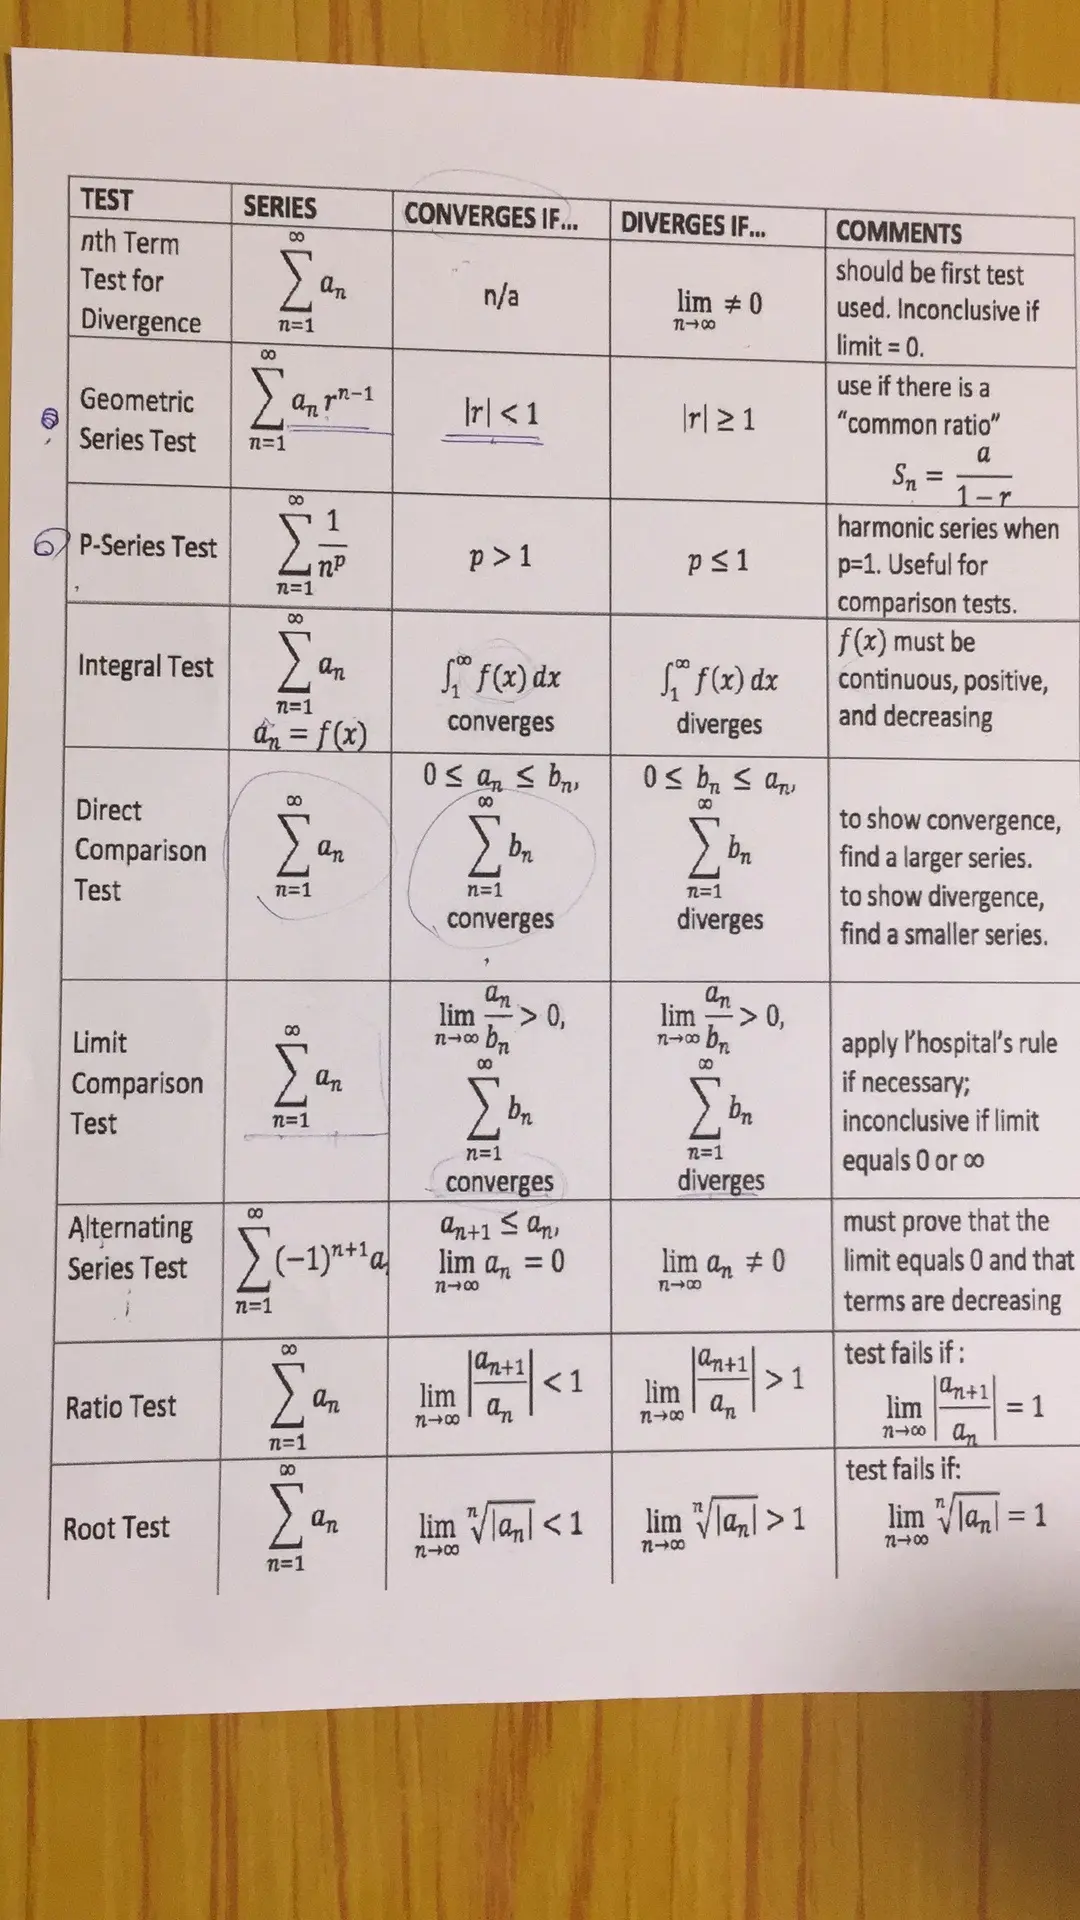 TEST SERIES CONVERGES IF... DIVERGES IF... COMMENTS
nth Term
Test for
Divergence
∞
∑ aₙ
n=1
n/a
lim ≠ 0
n→∞
should be first test
used. Inconclusive if
limit = 0.
Geometric
Series Test
∞
∑ aₙ rⁿ⁻¹
n=1
|r| < 1
|r| ≥ 1
use if there is a
“common ratio”
Sₙ = a / 1 − r
6) P-Series Test
∞
∑ 1/nᵖ
n=1
p > 1
p ≤ 1
harmonic series when
p=1. Useful for
comparison tests.
Integral Test
∞
∑ aₙ
n=1
aₙ = f(x)
∫₁^∞ f(x) dx
converges
∫₁^∞ f(x) dx
diverges
f(x) must be
continuous, positive,
and decreasing
Direct
Comparison
Test
∞
∑ aₙ
n=1
0 ≤ aₙ ≤ bₙ,
∞
∑ bₙ
n=1
converges
0 ≤ bₙ ≤ aₙ,
∞
∑ bₙ
n=1
diverges
to show convergence,
find a larger series.
to show divergence,
find a smaller series.
Limit
Comparison
Test
∞
∑ aₙ
n=1
lim aₙ/bₙ > 0,
n→∞
∞
∑ bₙ
n=1
converges
lim aₙ/bₙ > 0,
n→∞
∞
∑ bₙ
n=1
diverges
apply l’hospital’s rule
if necessary;
inconclusive if limit
equals 0 or ∞
Alternating
Series Test
∞
∑ (−1)ⁿ⁺¹a
n=1
aₙ₊₁ ≤ aₙ,
lim aₙ = 0
n→∞
lim aₙ ≠ 0
n→∞
must prove that the
limit equals 0 and that
terms are decreasing
Ratio Test
∞
∑ aₙ
n=1
lim |aₙ₊₁/aₙ| < 1
n→∞
lim |aₙ₊₁/aₙ| > 1
n→∞
test fails if :
lim |aₙ₊₁/aₙ| = 1
n→∞
Root Test
∞
∑ aₙ
n=1
lim ⁿ√|aₙ| < 1
n→∞
lim ⁿ√|aₙ| > 1
n→∞
test fails if:
lim ⁿ√|aₙ| = 1
n→∞